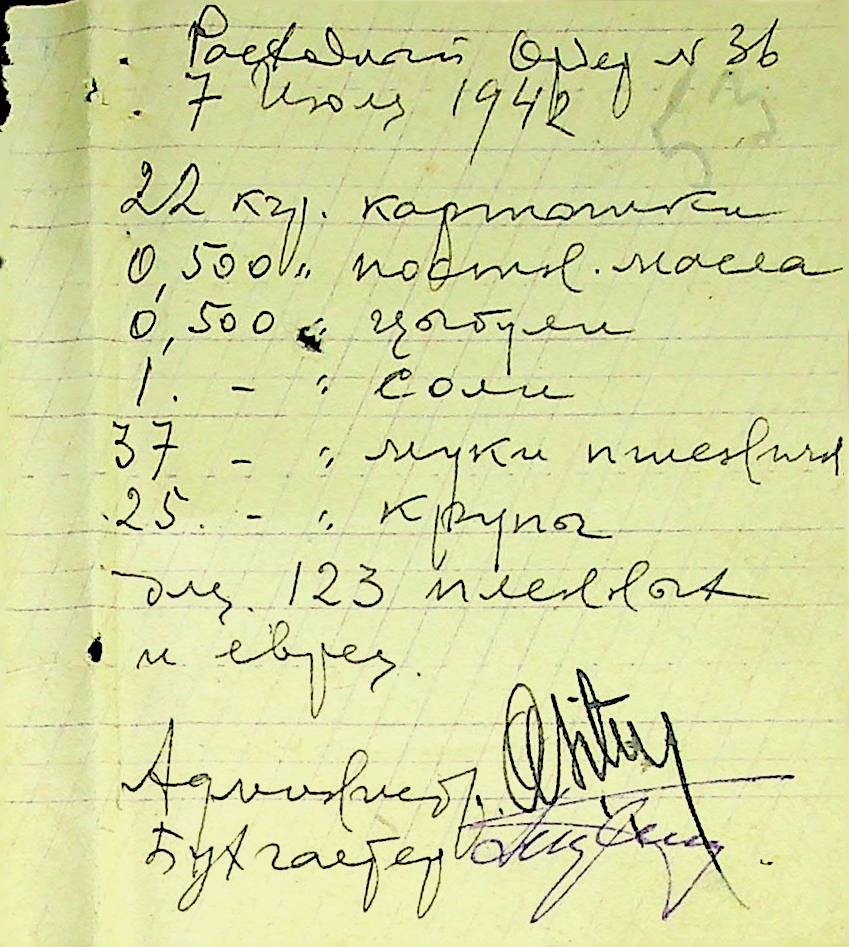 Расходный Ордер N 36
7 Июля 1942
22 кгр. картошки
0,500 " постн. масла
0,500 " цыбули
1. - " соли
37 - " муки пшеничн
25. - " крупы
для 123 пленных
и евреев.
Администр.
Бухгалтер